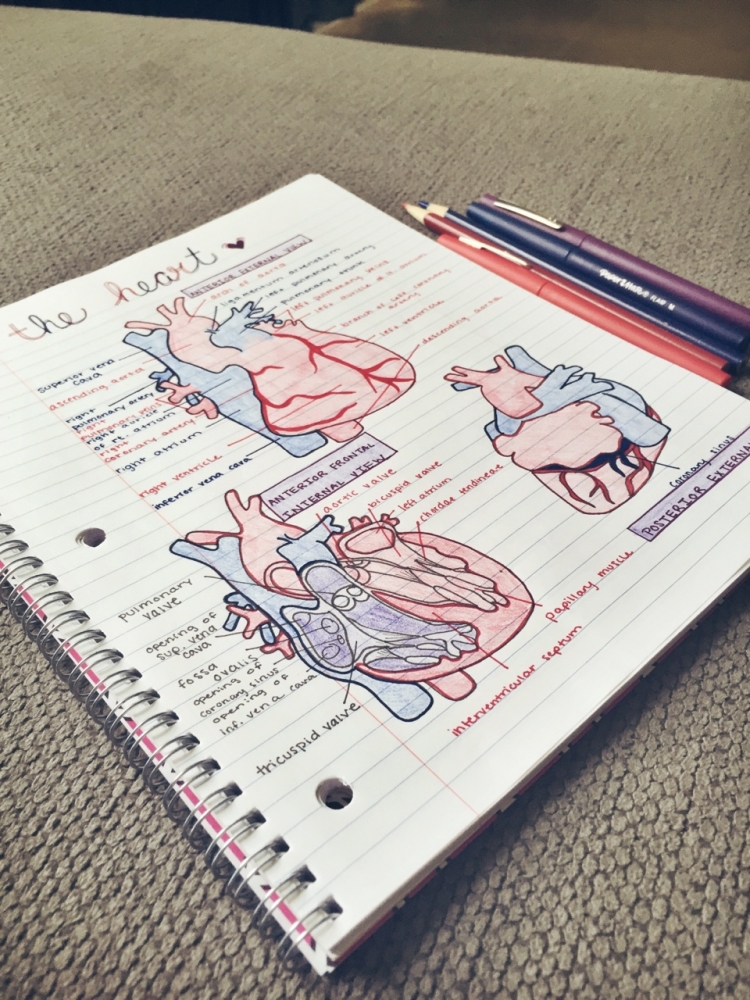 the heart
ANTERIOR EXTERNAL VIEW
arch of aorta
ligamentum arteriosum
left pulmonary artery
pulmonary trunk
left pulmonary veins
left auricle of lt. atrium
branch of left coronary
artery
left ventricle
descending aorta
superior vena
cava
ascending aorta
right
pulmonary artery
right
pulmonary veins
right auricle
of rt. atrium
coronary artery
right atrium
right ventricle
inferior vena cava
coronary sinus
POSTERIOR EXTERNAL
ANTERIOR FRONTAL
INTERNAL VIEW
aortic valve
bicuspid valve
left atrium
chordae tendineae
pulmonary
valve
opening of
sup. vena
cava
fossa
ovalis
opening of
coronary sinus
opening of
inf. vena cava
tricuspid valve
papillary muscle
interventricular septum
PaperMate FLAIR M